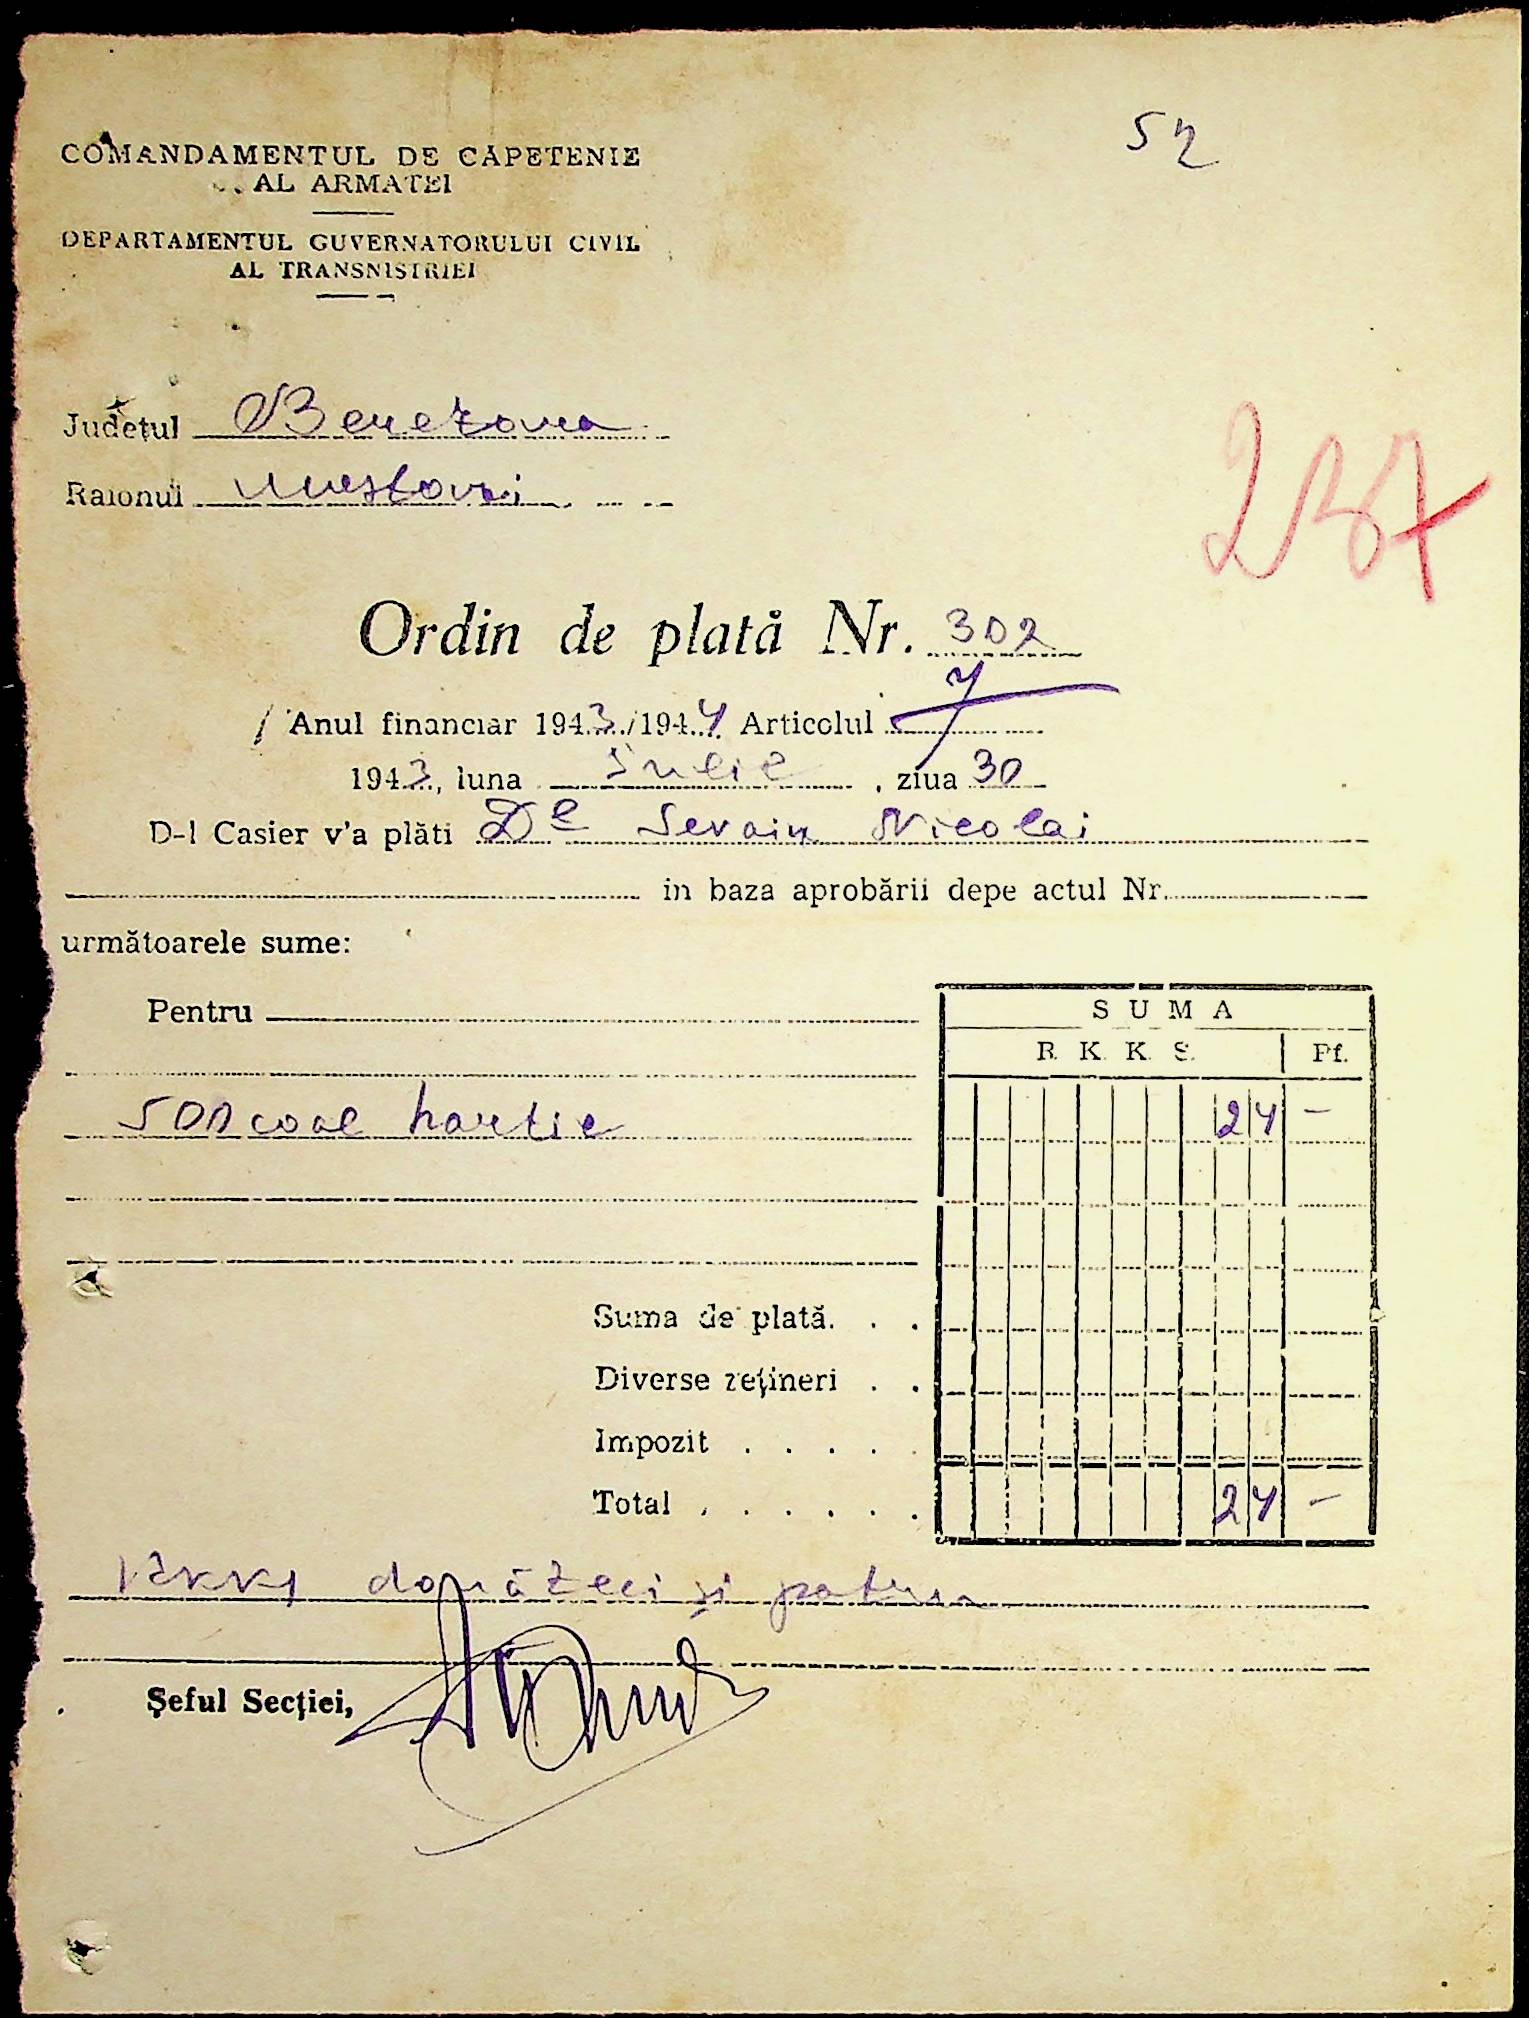 52
COMANDAMENTUL DE CAPETENIE
AL ARMATEI
DEPARTAMENTUL GUVERNATORULUI CIVIL
AL TRANSNISTRIEI
Județul Berezovca
Raionul Mostovoi
237
Ordin de plată Nr. 302
Anul financiar 1943/1944 Articolul 7
1943, luna Iulie, ziua 30
D-l Casier v'a plăti Dl Nicolai
in baza aprobării depe actul Nr.
următoarele sume:
Pentru
SUMA
R. K. K. S. Pf.
500 coale hartie 24 –
Suma de plată. . .
Diverse rețineri . .
Impozit . . . . .
Total . . . . . . . 24 –
RKKS douăzeci și patru
Șeful Secției,